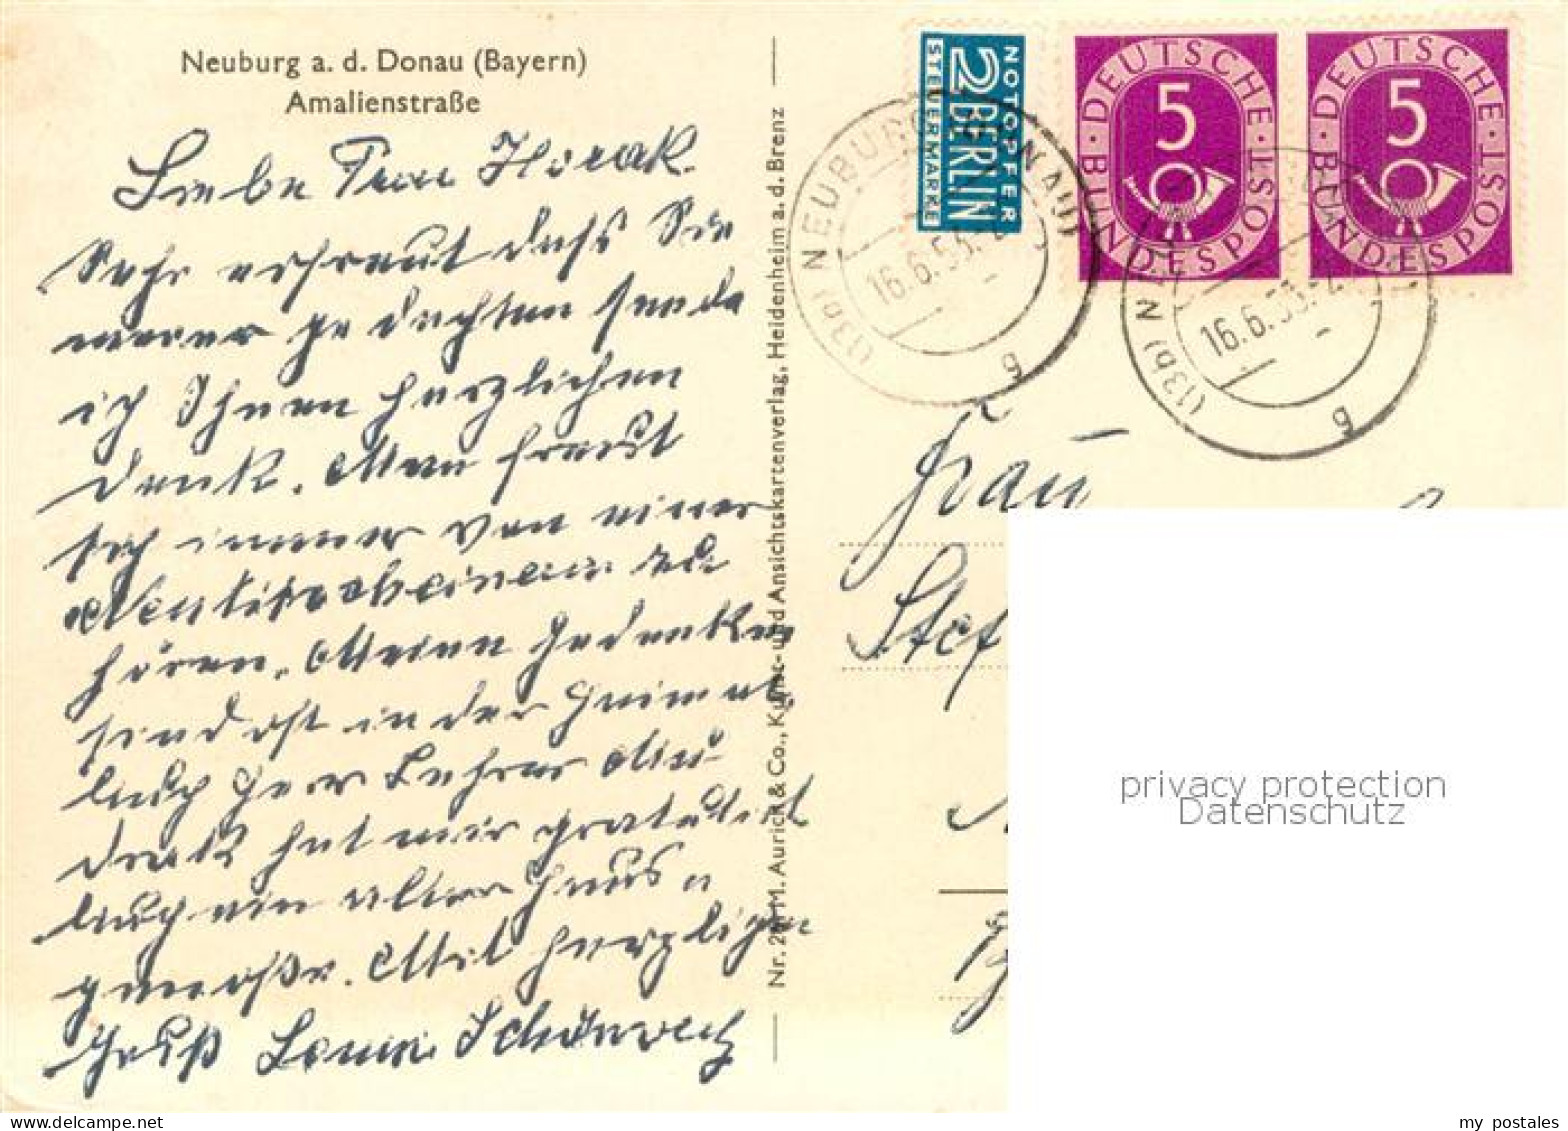 Neuburg a. d. Donau (Bayern)
Amalienstraße
Liebe Frau Horak.
Sehr erfreut daß Sie
meiner gedachten sende
ich Ihnen herzlichen
Dank. Man freut
sich immer von einer
zu
hören. Meine Gedanken
sind oft in der Heimat,
auch Herr Lehrer Mu-
hat mir gratuliert
auch ein alter Haus
Mit herzlichen
Gruß
Nr. M. Aurich & Co., Kunst- und Ansichtskartenverlag, Heidenheim a. d. Brenz
NOTOPFER
2 BERLIN
STEUERMARKE
DEUTSCHE BUNDESPOST
5
DEUTSCHE BUNDESPOST
5
(13b) NEUBURG (DONAU)
16.6.53
b
(13b) N
16.6.53
b
Frau
Stef
privacy protection
Datenschutz
my postales